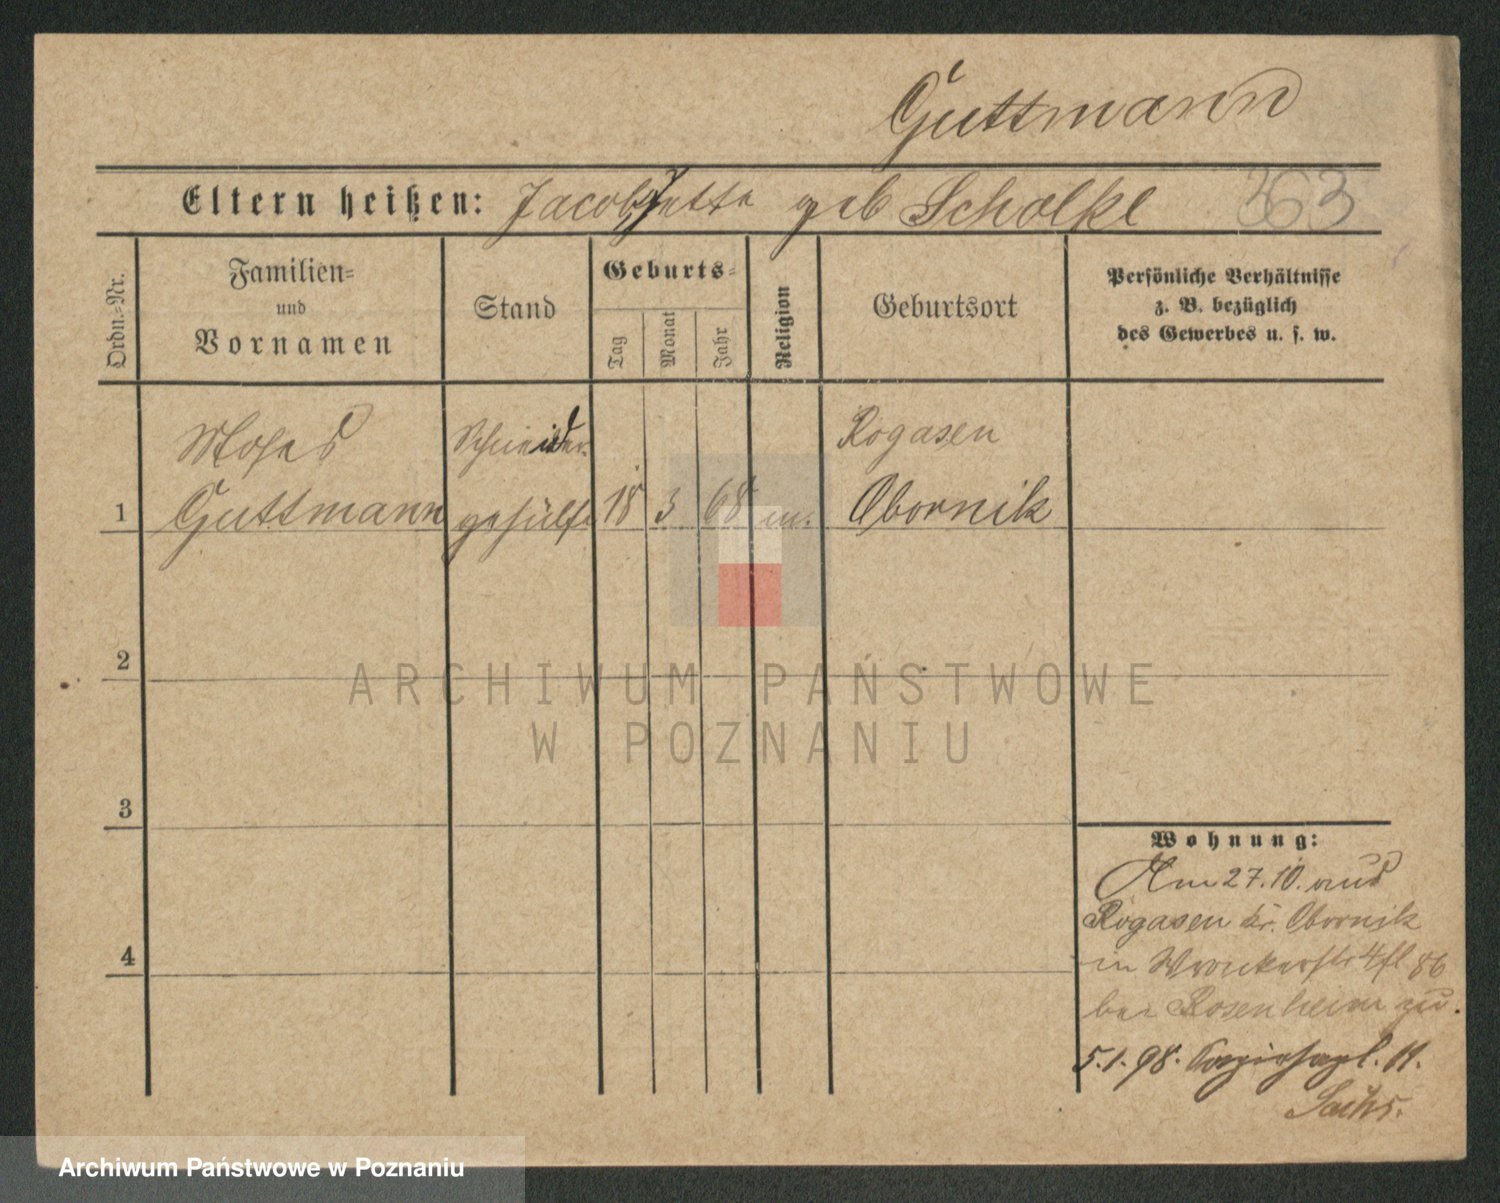 Guttmann
Eltern heißen: Jacob Jette geb Scholke 363
Ordn.=Nr.
Familien=
und
Vornamen
Stand
Geburts=
Tag
Monat
Jahr
Religion
Geburtsort
Persönliche Verhältnisse
z. B. bezüglich
des Gewerbes u. s. w.
Moses Schneider Rogasen
1 Guttmann gehülfe 18 3 68 m. Obornik
2
ARCHIWUM PAŃSTWOWE
W POZNANIU
3
Wohnung:
Am 27.10. aus
Rogasen Kr. Obornik
in Wronkerstr 4
bei Rosenheim zu.
5.1.98. 11.
Sachs.
4
Archiwum Państwowe w Poznaniu